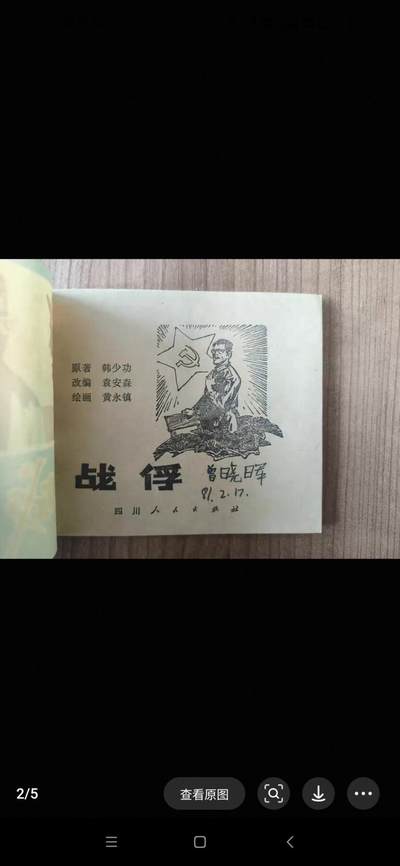 原著 韩少功
改编 袁安淼
绘画 黄永镇
战俘
曾晓晖
81.2.17.
四川人民出版社
2/5
查看原图